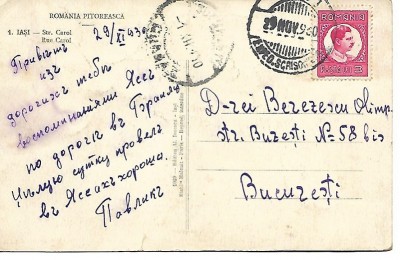 ROMÂNIA PITOREASCĂ
1. IAŞI — Str. Carol
Rue Carol
29/XI 930
Привѣтъ
изъ
дорогихъ тебѣ
воспоминаніями Яссъ
по дорогѣ въ
Цѣлую сутку провелъ
въ Яссахъ хорошо.
Павликъ
29 NOV. 930
ROMANIA
D-rei Bezezescu Olimp.
str. Buzeşti № 58 bis
Bucureşti